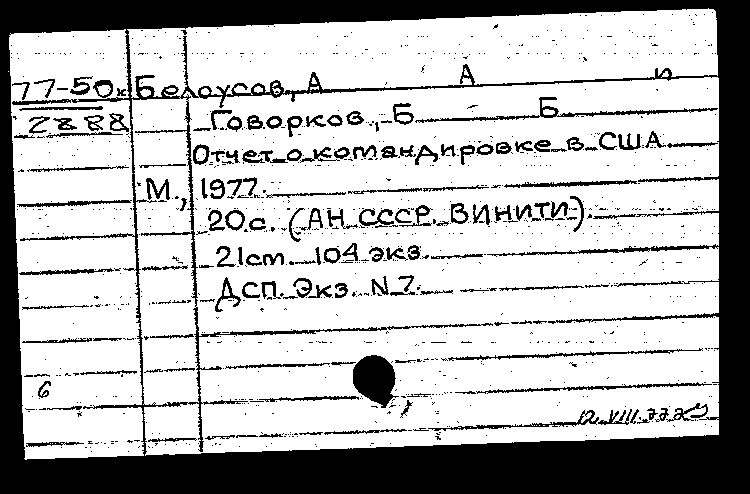 77-50к Белоусов, А А и
2888 Говорков, Б Б
Отчет о командировке в США.
М., 1977.
20с. (АН СССР. ВИНИТИ).
21см. 104 экз.
ДСП. Экз. N 7.
6
12.VIII.77г